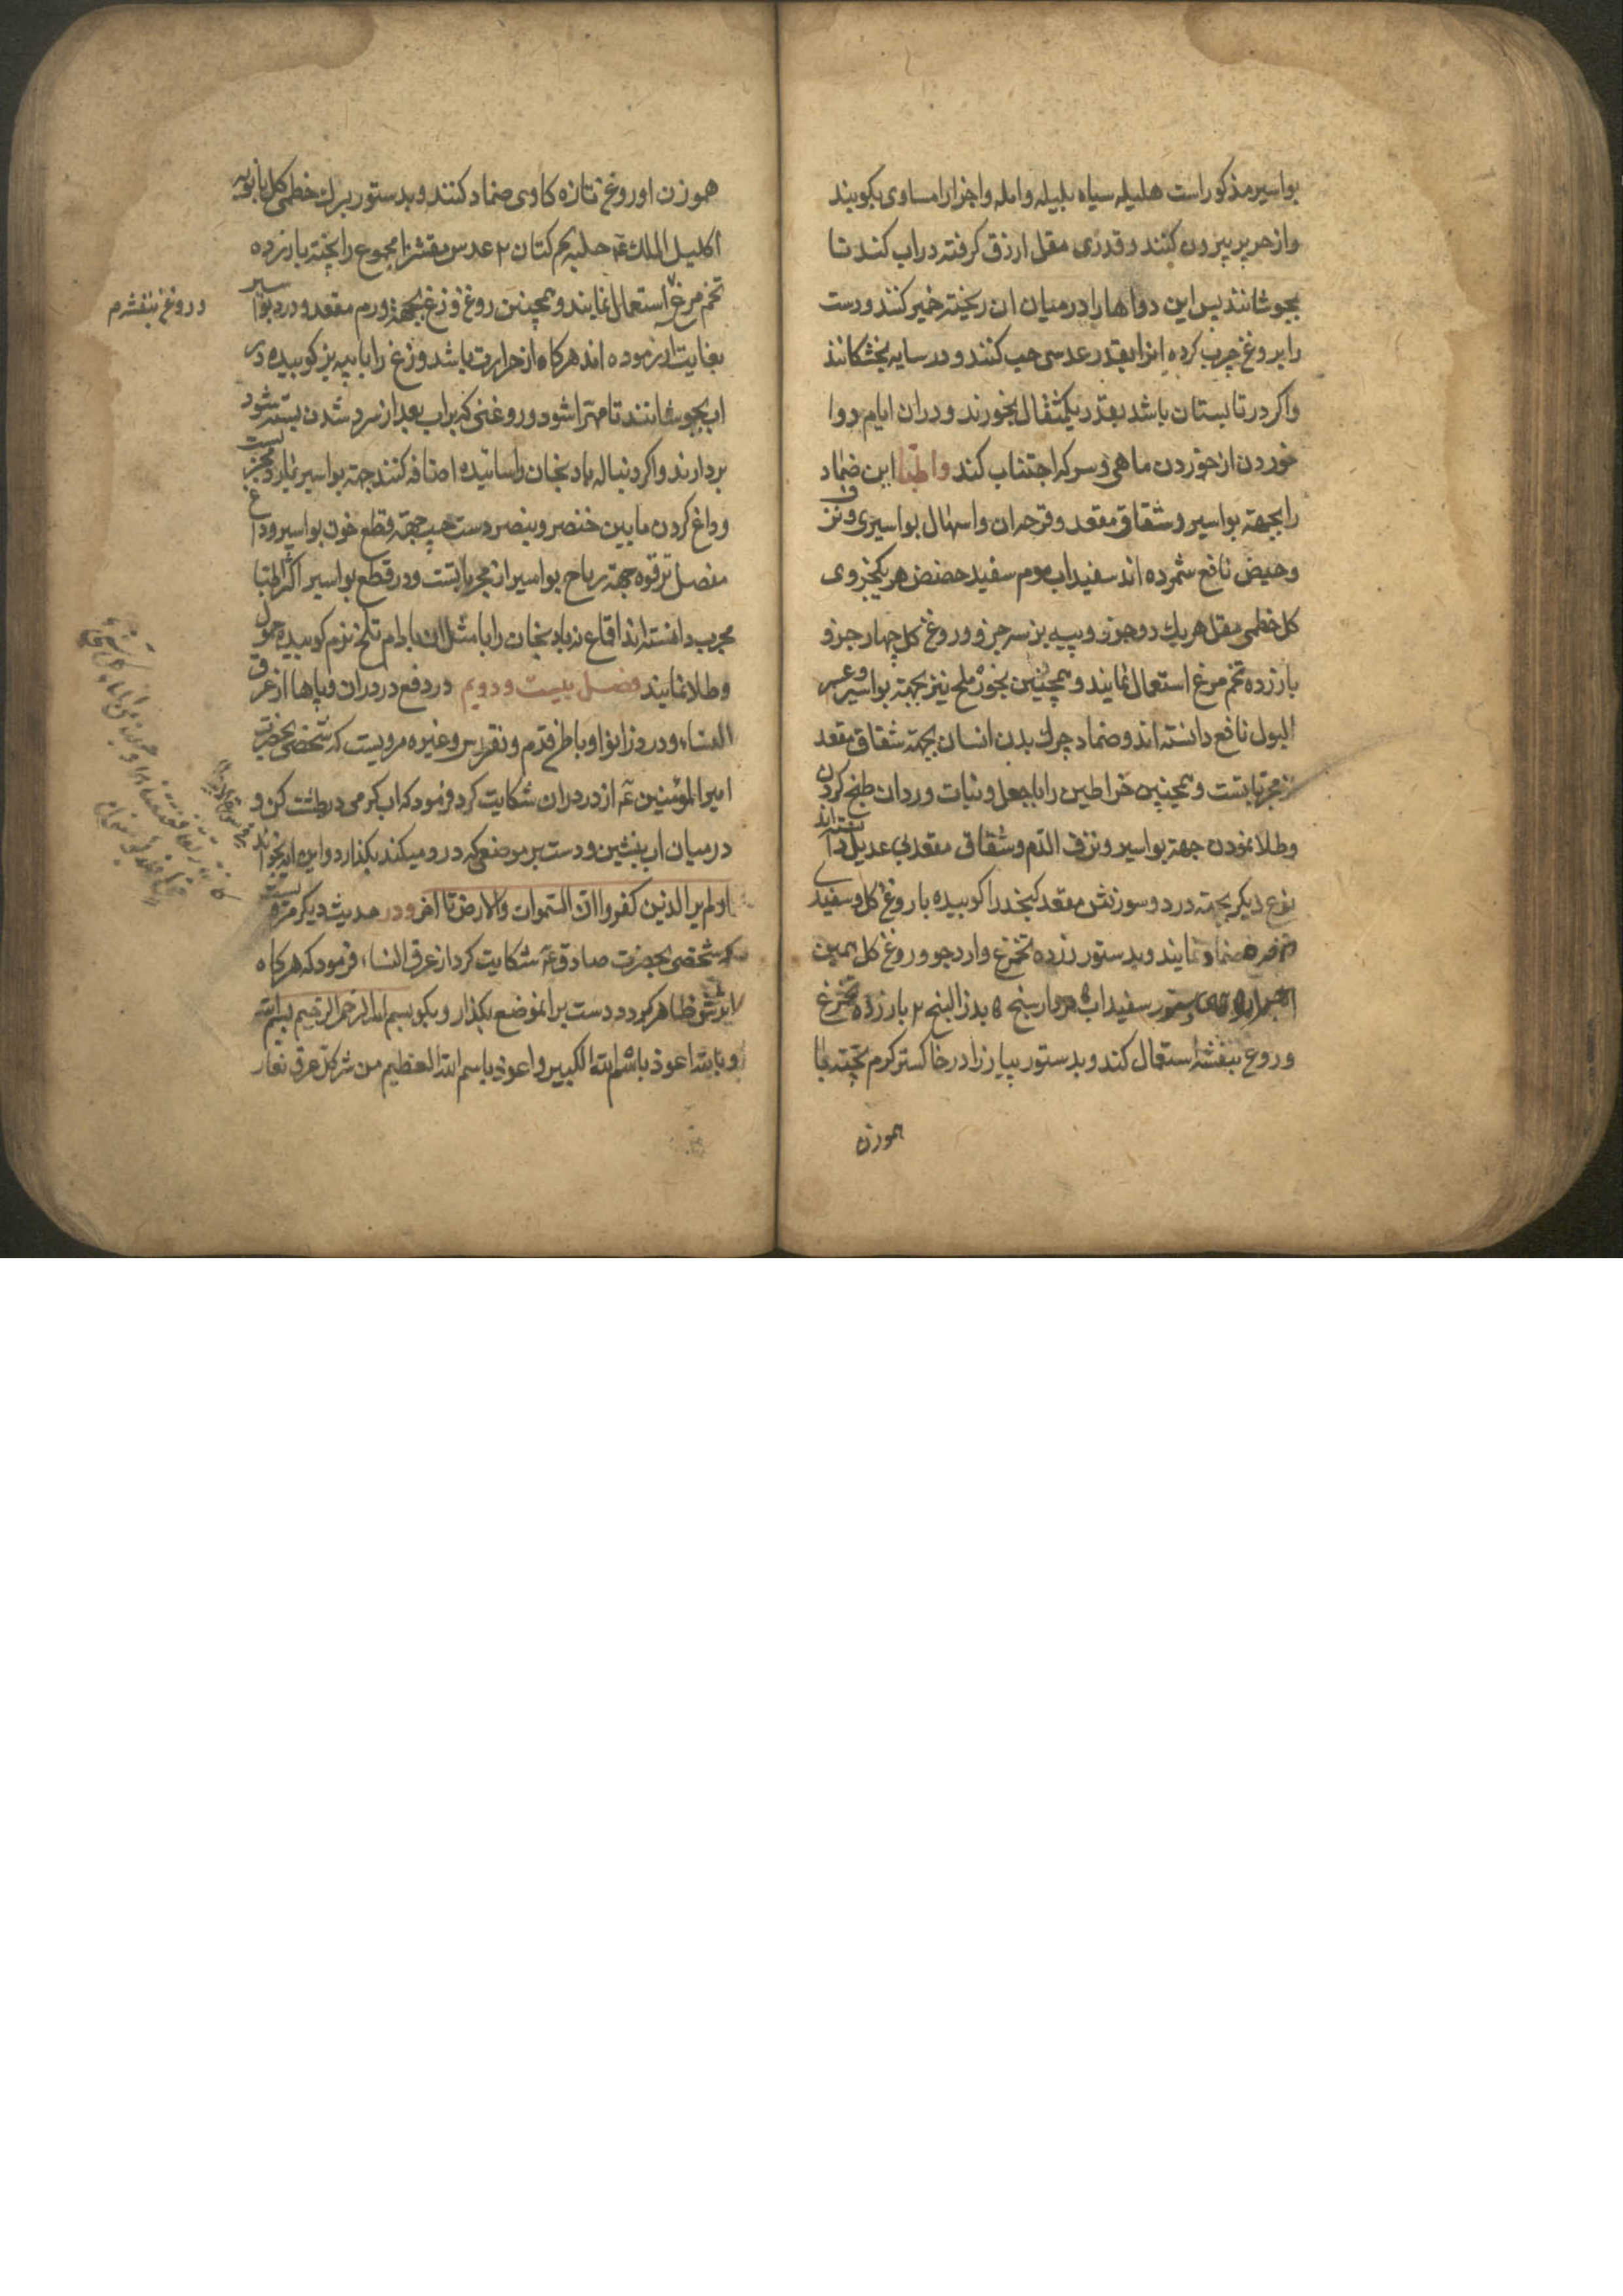 بواسیر مذکور است هلیله سیاه بلیله و امله و اجزا را مساوی بکوبند
و از حریر بیرون کنند و قدری مقل ازرق کرفته در اب کند تا
بجوشانند پس این دواها را در میان ان ریخته خمیر کنند و دست
را بروغن چرب کرده انرا بقدر عدسی حب کنند و در سایه بخشکانند
و اکر در تابستان باشد بقدر یکمثقال بخورند و در ان ایام دوا
خوردن از خوردن ماهی و سرکه اجتناب کند و اطبا این ضماد
را بجهته بواسیر و شقاق مقعد و قرحه ان و اسهال بواسیری و نزف
و حیض نافع شمرده اند سفیداب موم سفید حضض هر یکجزوی
کل خطمی مقل هر یک دو جزو و پیه بز سه جزو و روغن کل چهار جزو
با زرده تخم مرغ استعمال نمایند و همچنین بخور ملح نیز بجهته بواسیر و عسر
البول نافع دانسته اند و ضماد چرک بدن انسان بجهته شقاق مقعد
از مجرباتست و همچنین خراطین را با جعل و نبات وردان طبخ کردن
و طلا نمودن جهته بواسیر و نزف الدم و شقاق مقعد بی عدیل دانسته اند
نوع دیکر بجهته درد و سوزش مقعد کنجد را کوبیده با روغن کل و سفیدی
ضماد نمایند و بدستور زرده تخم مرغ و ارد جو و روغن کل همین
سفیداب مردار سنج ۵ بذر البنج ۲ با زرده تخم مرغ
و روغن بنفشه استعمال کند و بدستور پیاز را در خاکستر کرم پخته با
هموزن
هموزن او روغن تازه کاوی ضماد کنند و بدستور برک خطمی کل بابونه
اکلیل الملک حلبه تخم کتان ۲ عدس مقشر را مجموع را پخته با زرده
تخم مرغ استعمال نمایند و همچنین روغن وزغ بجهته ورم مقعد و درد بواسیر
و روغن بنفشه م
بغایت ازموده اند هرکاه از حرارت باشد وزغ را با پیه بز کوبیده در
اب بجوشانند تا مهرا شود و روغنی که بر اب بعد از سرد شدن بسته شود
بردارند و اکر دنباله بادنجان را سائیده اضافه کنند جهته بواسیر بسیار مجربست
و داغ کردن مابین خنصر و بنصر دست چپ جهته قطع خون بواسیر و داغ
مفصل ترقوه جهته ریاح بواسیر از مجرباتست و در قطع بواسیر اکثر اطبا
مجرب دانسته اند اقماع بادنجان را با مثل ان بادام تلخ نرم کوبیده حمول
و طلا نمایند فصل بیست و دویم در دفع درد ران و پاها از عرق
النسا و درد زانو و باطن قدم و نقرس و غیره مرویست که شخصی بحضرت
امیر المؤمنین ع از درد ران شکایت کرد فرمود که اب کرمی در طشت کن و
در میان اب بنشین و دست بر موضعی که درد میکند بکذار و این ایه بخواند
اولم یر الذین کفروا ان السموات والارض تا اخر و در حدیث دیکر مرویست
که شخصی بحضرت صادق ع شکایت کرد از عرق النسا فرمود که هرکاه
اثرش ظاهر کردد دست بر انموضع بکذار و بکو بسم الله الرحمن الرحیم بسم الله
و بالله اعوذ باسم الله الکبیر و اعوذ باسم الله العظیم من شر کل عرق نعار